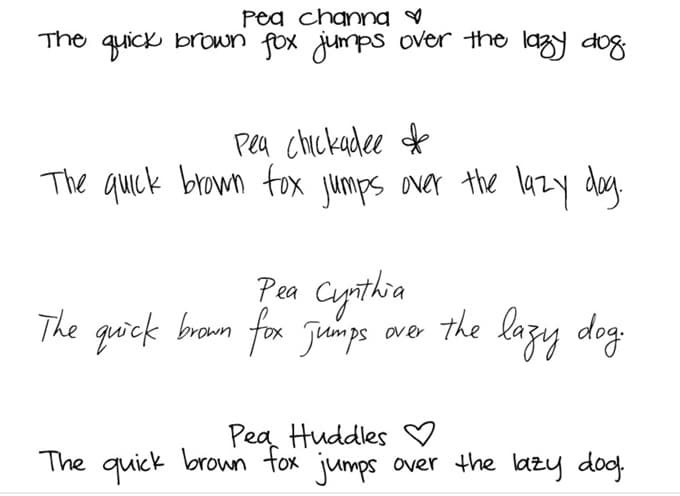 Pea channa ♡
The quick brown fox jumps over the lazy dog.
Pea chickadee
The quick brown fox jumps over the lazy dog.
Pea Cynthia
The quick brown fox jumps over the lazy dog.
Pea Huddles ♡
The quick brown fox jumps over the lazy dog.